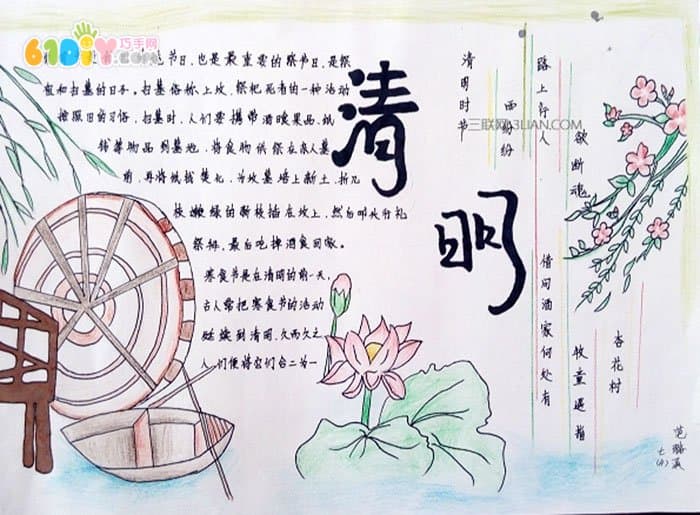 61DIY巧手网
节日,也是最重要的祭节日,是祭
祖和扫墓的日子。扫墓俗称上坟,祭祀死者的一种活动
按照旧的习俗,扫墓时,人们要携带酒馔果品、纸
钱等物品到墓地,将食物供祭在亲人墓
前,再将纸钱焚化,为坟墓培上新土,折几
枝嫩绿的新枝插在坟上,然后叩头行礼
祭拜,最后吃掉酒食回家。
寒食节是在清明的前一天,
古人常把寒食节的活动
延续到清明,久而久之
人们便将它们合二为一
清明
清明时节
雨纷纷
路上行人
欲断魂
借问酒家何处有
牧童遥指
杏花村
三联网 3LIAN.COM
范
七